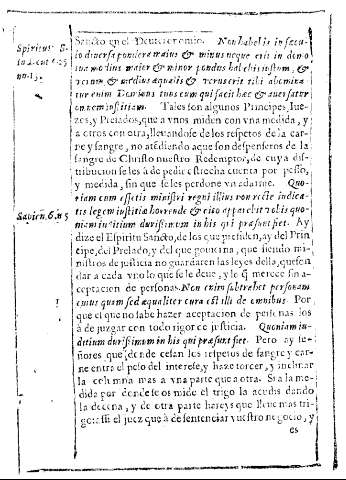 Sancto en el Deuteronomio. Non habebis in saccu-
Spiritus S.
lo diversa pondera maius & minus neque erit in domo
tua modius maior & minor pondus habebis iustum, &
verum & modius æqualis & verus erit tibi abomina
nu. 13.
tur enim Dominus tuus eum qui facit hæc & aversatur
omnem iniustitiam. Tales son algunos Principes, Iue-
zes, y Prelados, que a vnos miden con vna medida, y
a otros con otra, lleuandose de los respetos de la car-
ne y sangre, no atẽdiendo aque son despenseros de la
sangre de Christo nuestro Redemptor, de cuya dis-
tribucion se les à de pedir estrecha cuenta por peso,
y medida, sin que se les perdone vn adarme. Quo-
riam cum essetis ministri regni illius non recte iudica-
tis legem iustitiæ horrende & cito apparebit vobis quo-
Sapien. 6. n. 5
niam iuditium durissimum in his qui præsunt fiet. Ay
dize el Espiritu Sancto, de los que presiden, ay del Prin
cipe, del Prelado, y del que gouierna, que siendo mi-
nistros de justicia no guardaren las leyes della, queriẽ
dar a cada vno lo que se le deue, y le q̃ merece sin a-
ceptacion de personas. Non enim subtrahet personam
cuius quam sed æqualiter cura est illi de omnibus. Por
que el que no sabe hazer aceptacion de personas los
à de juzgar con todo rigor de justicia. Quoniam iu-
ditium durissimum in his qui præsunt fiet. Pero ay se-
ñores que donde cesan los respetos de sangre y car-
ne entra el peso del interese, y haze torcer, y inclinar
la columna mas a vna parte que a otra. Si a la me-
dida por donde se os mide el trigo la acudis dando
la decena, y de otra parte hazeys que lleue mas tri-
go assi el juez que à de sentenciar vuestro negocio, y
es